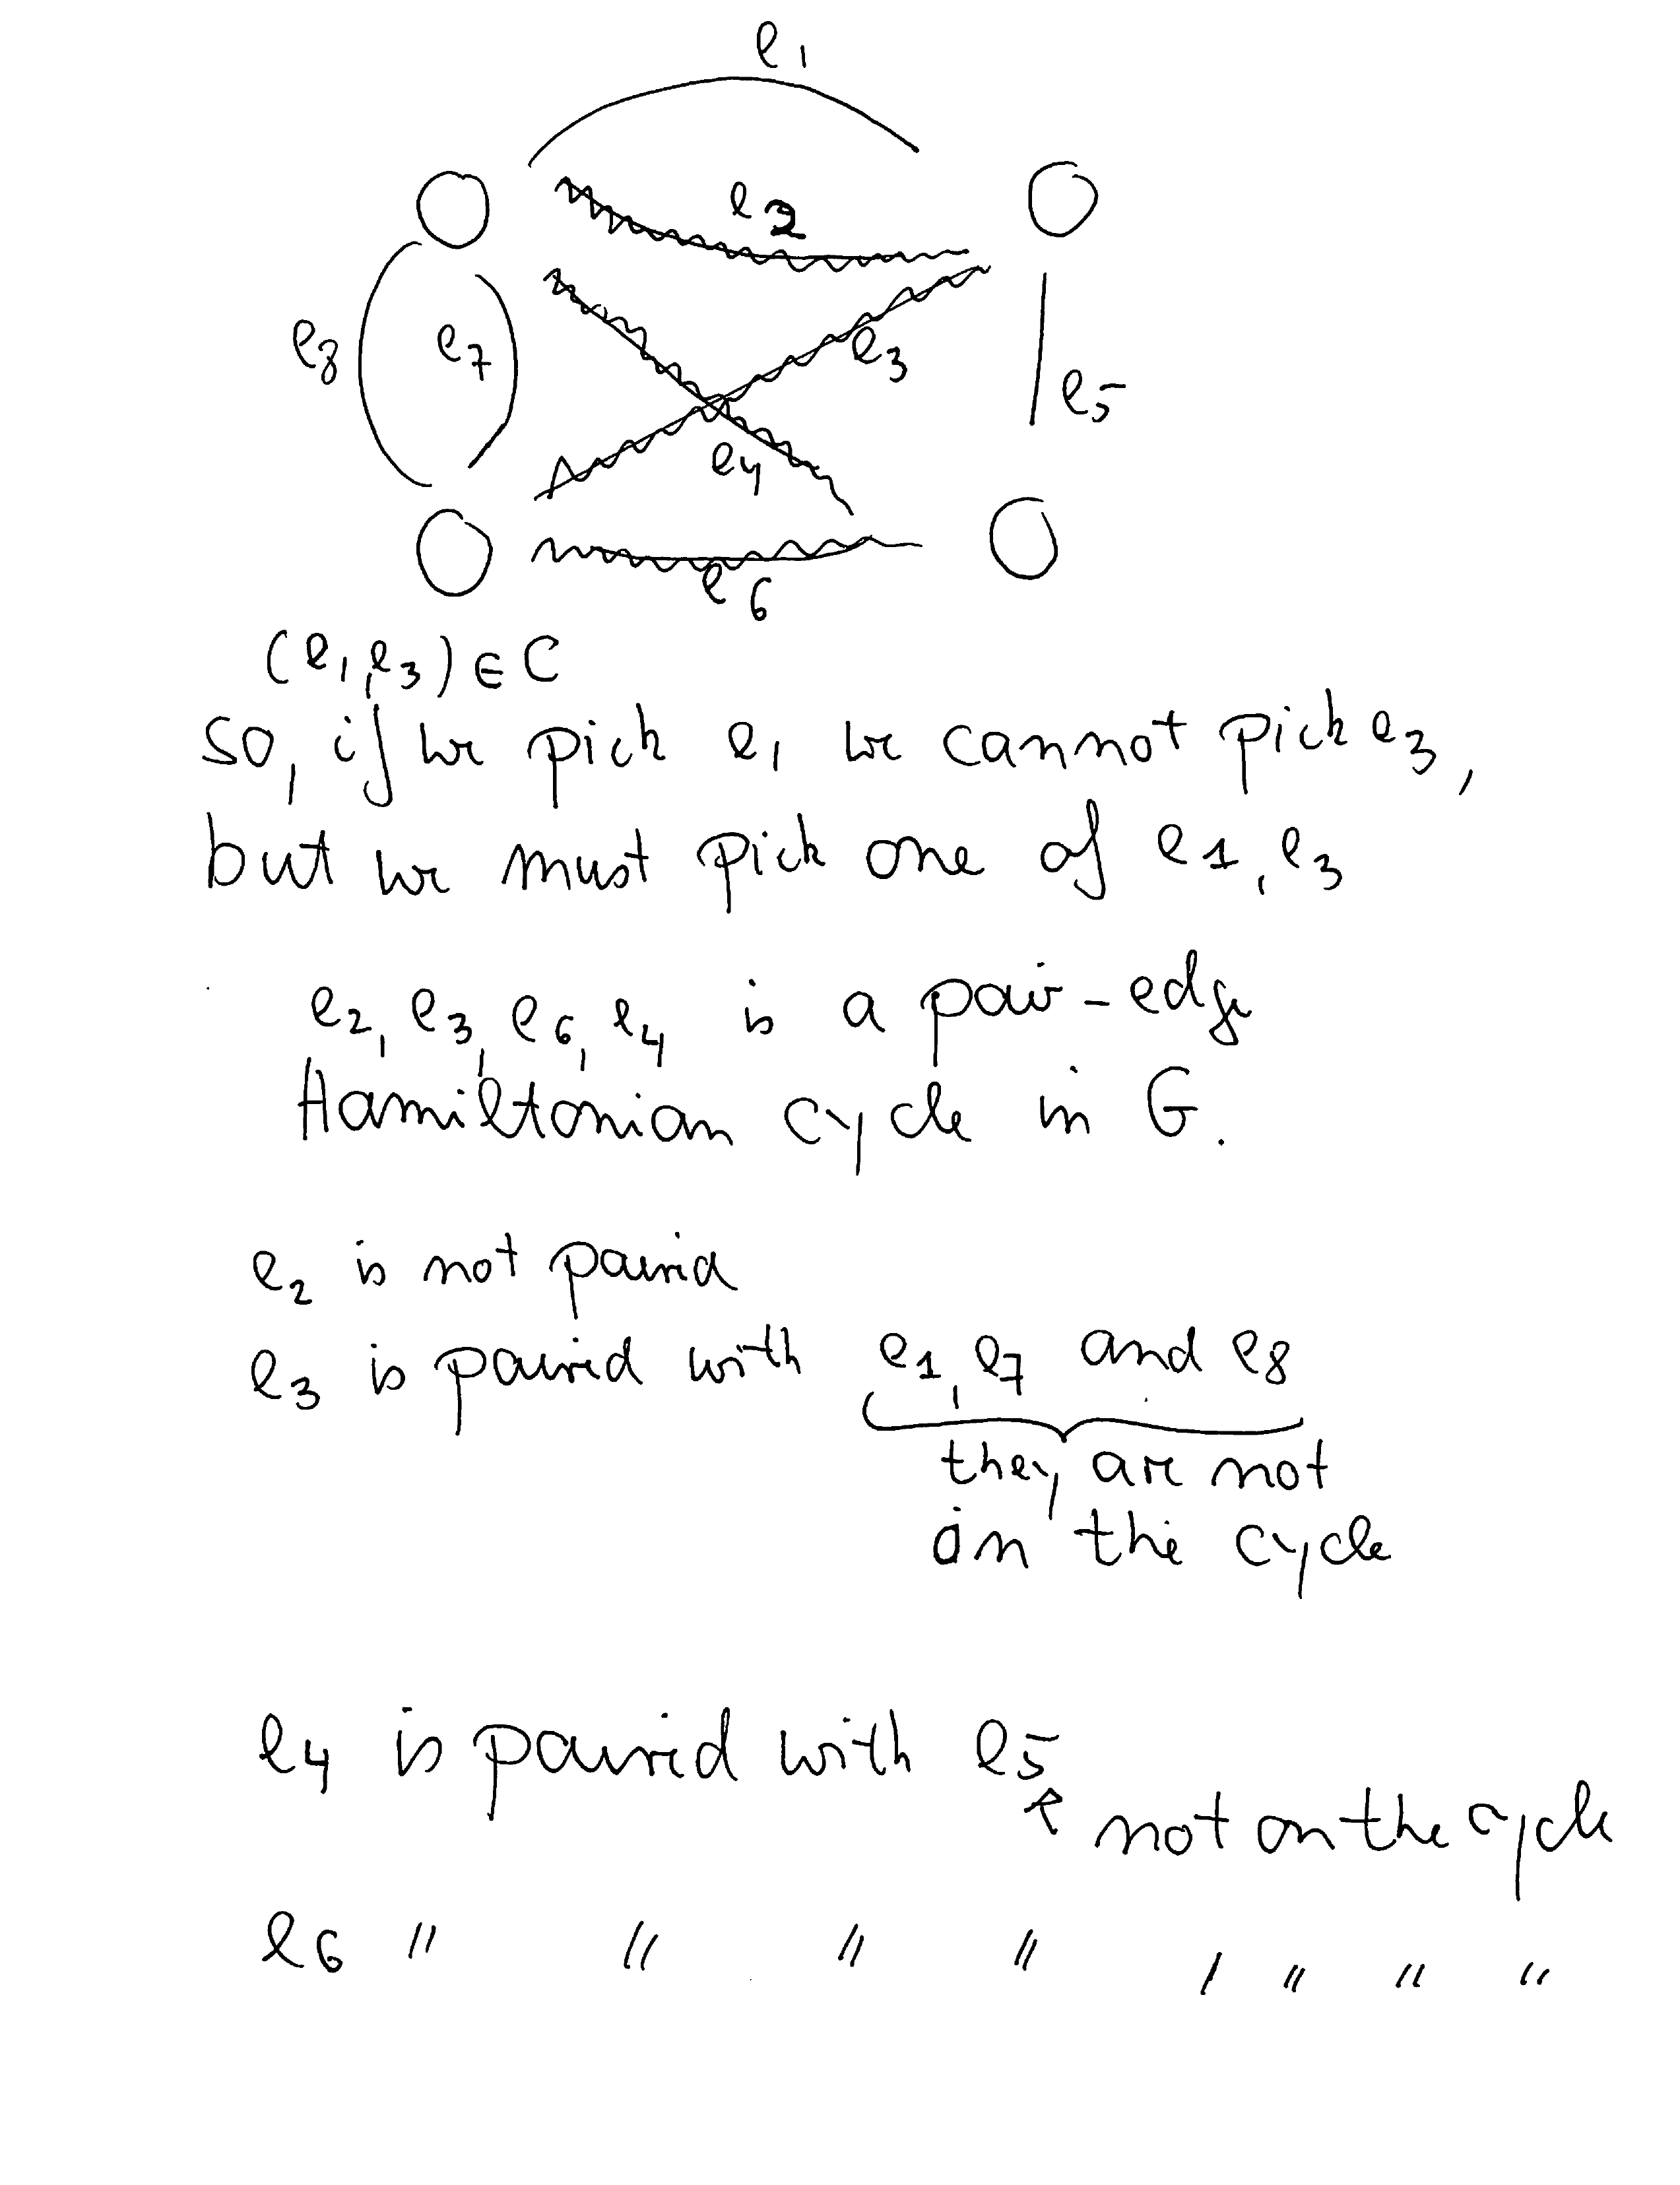 e1
e2
e8
e7
e3
e5
e4
e6
(e1,e3) ∈ C
so, if we pick e1 we cannot pick e3,
but we must pick one of e1, e3
e2, e3, e6, e4 is a pair-edge
Hamiltonian cycle in G.
e2 is not paired
e3 is paired with e1, e7 and e8
they are not
on the cycle
e4 is paired with e5
not on the cycle
e6 " " " " , " " "